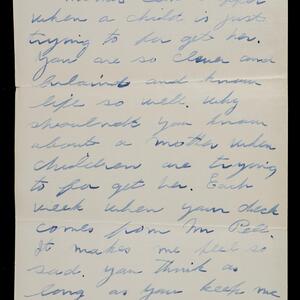 when a child is just
trying to for get her.
you are so clever and
and know
life so well. why
shouldnt you know
about a mother when
children are trying
to for get her. Each
week when your check
comes from Mr
It makes me feel so
sad. you think as
long as you keep me